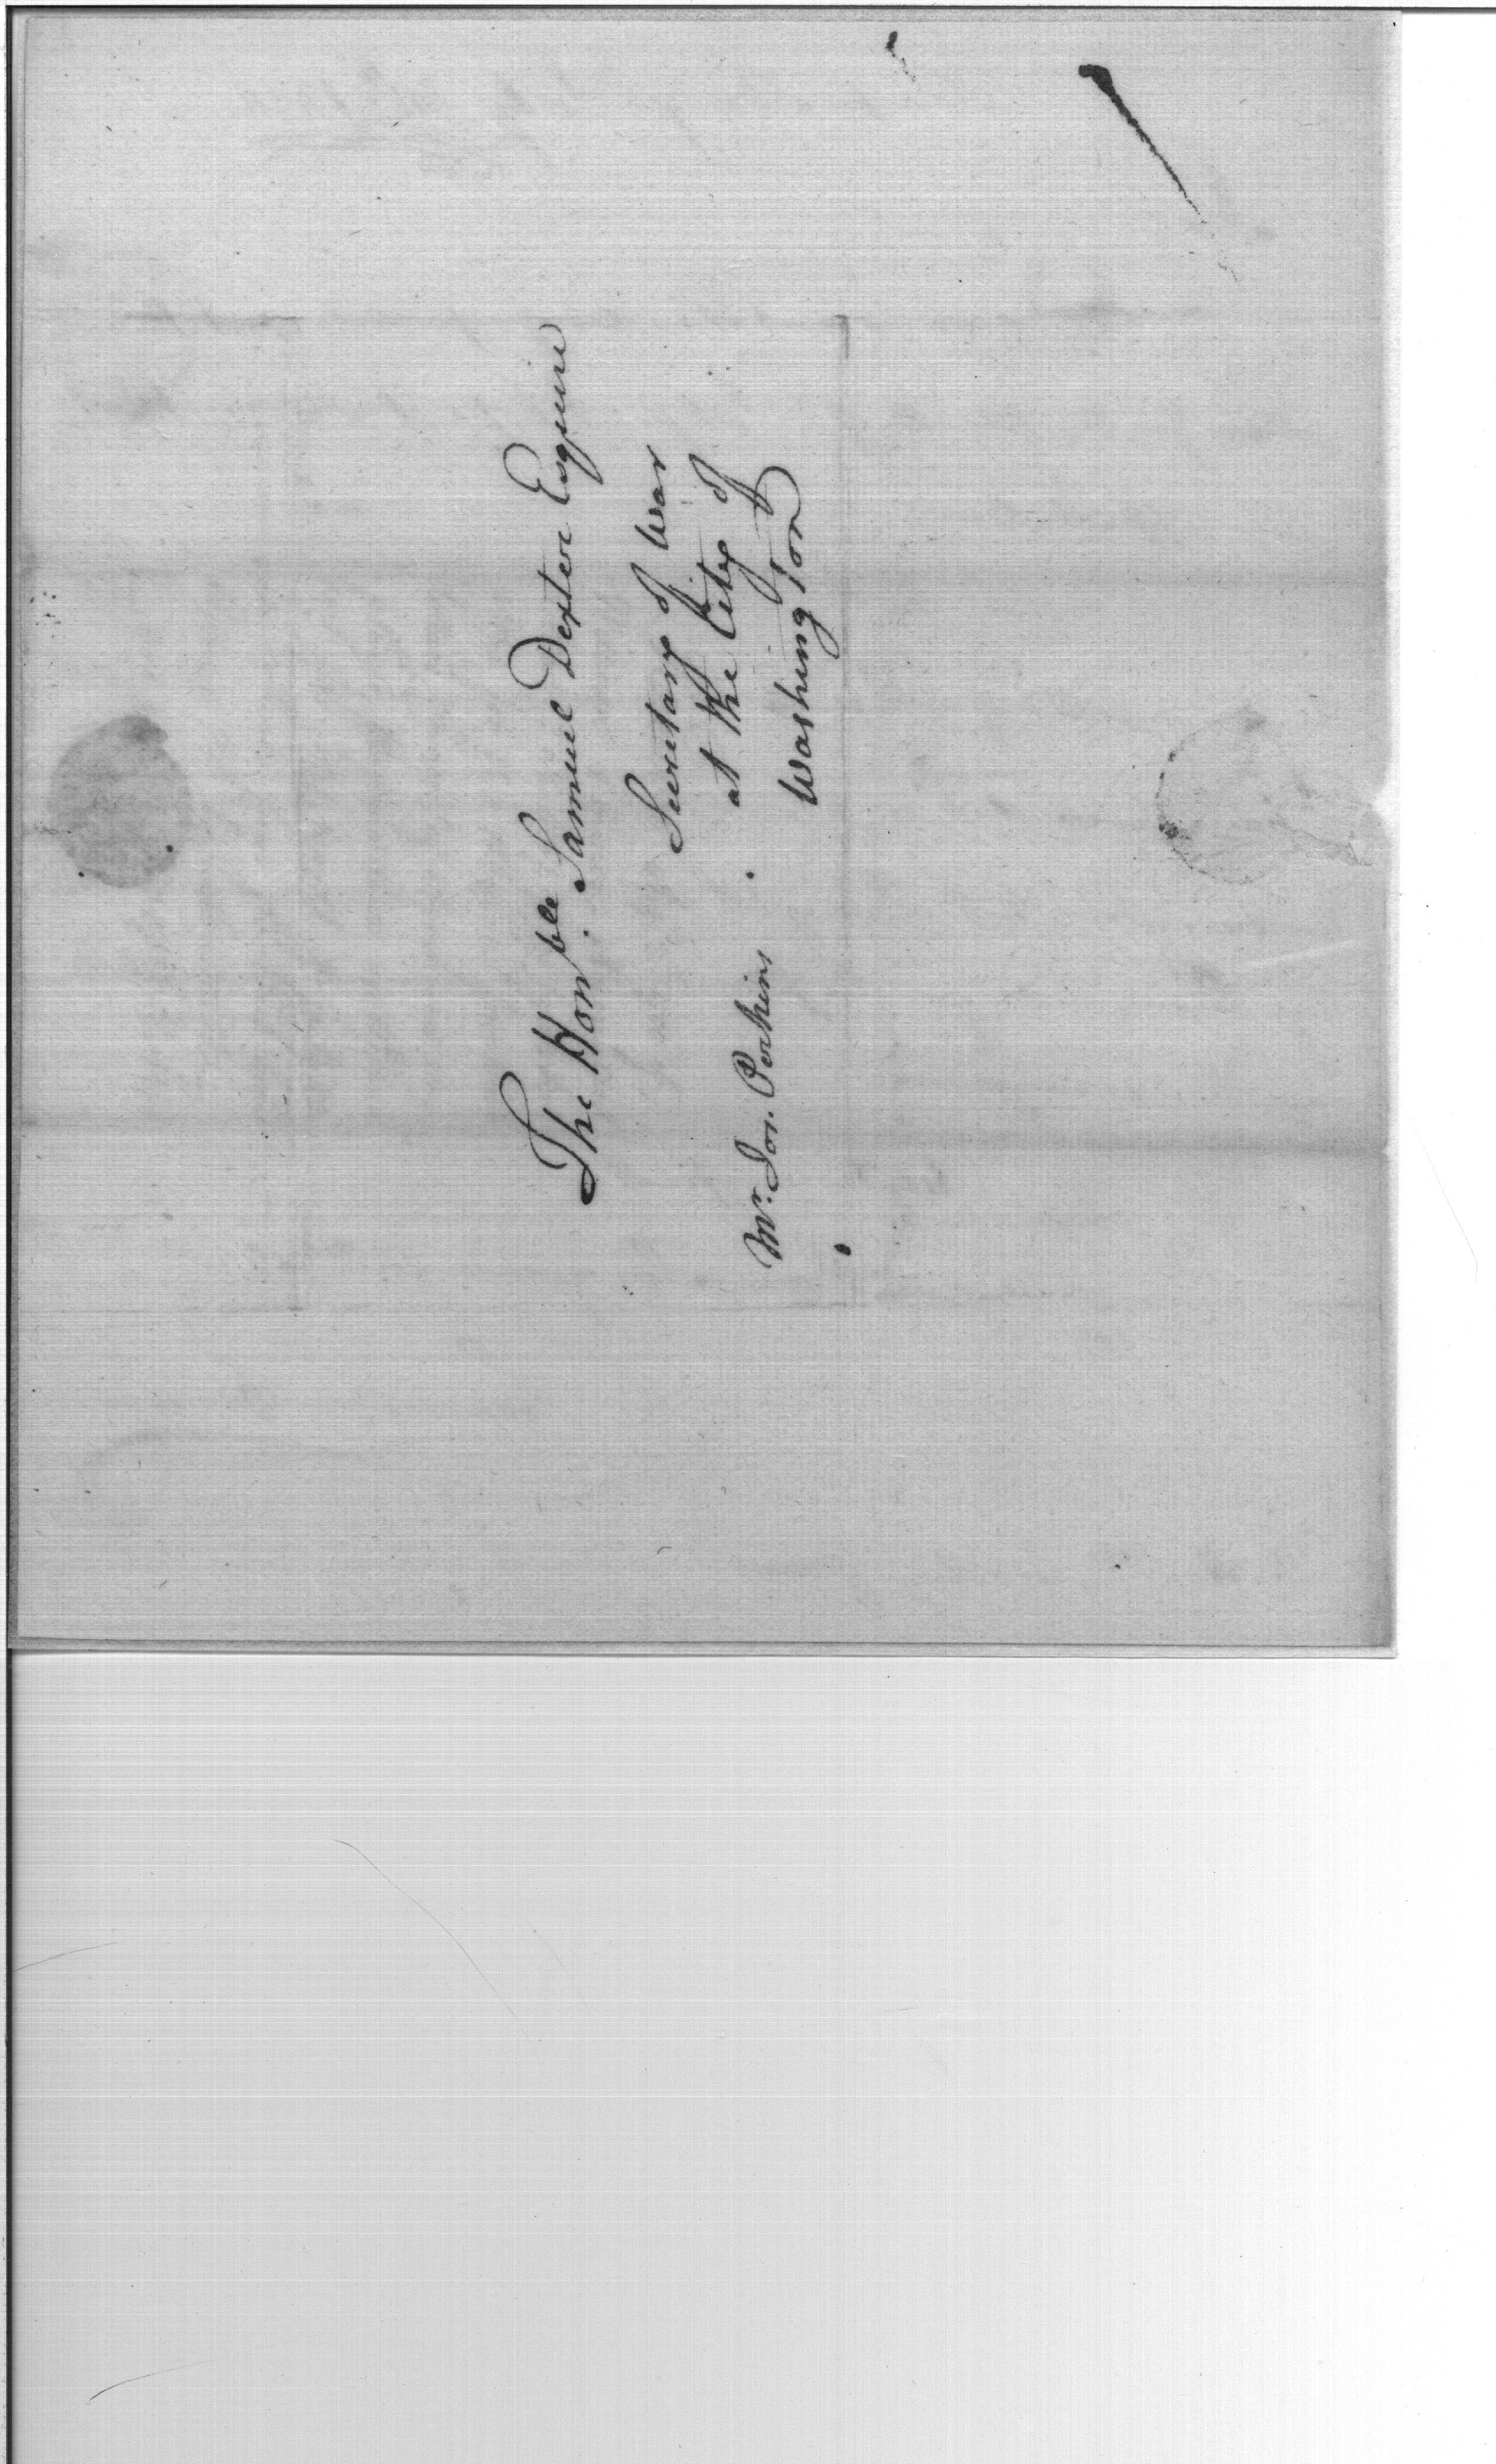 The Hon.ble Samuel Dexter Esquire
Secretary of War
at the City of
Washington
Mr. Jon. Perkins